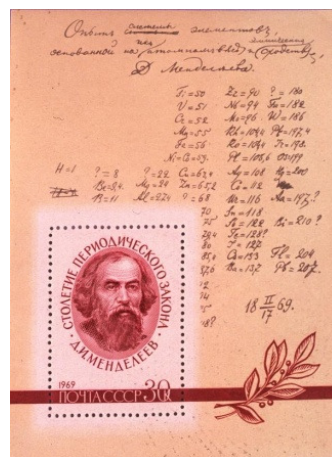 Опытъ системы элементовъ,
основанной на атомномъ вѣсѣ и химическомъ сходствѣ
Д. Менделеева.
Ti=50 Zr=90 ?=180
V=51 Nb=94 Ta=182
Cr=52 Mo=96 W=186
Mn=55 Rh=104,4 Pt=197,4
Fe=56 Ru=104,4 Ir=198
Ni=Co=59 Pl=106,6 Os=199
H=1 ?=8 ?=22 Cu=63,4 Ag=108 Hg=200
Be=9,4 Mg=24 Zn=65,2 Cd=112
B=11 Al=27,4 ?=68 Ur=116 Au=197?
70 Sn=118
75 Sb=122 Bi=210?
79,4 Te=128?
80 J=127
85,4 Cs=133 Tl=204
87,6 Ba=137 Pb=207
18 II/17 69.
СТОЛЕТИЕ ПЕРИОДИЧЕСКОГО ЗАКОНА
Д.И.МЕНДЕЛЕЕВ
1969
ПОЧТА СССР 30К